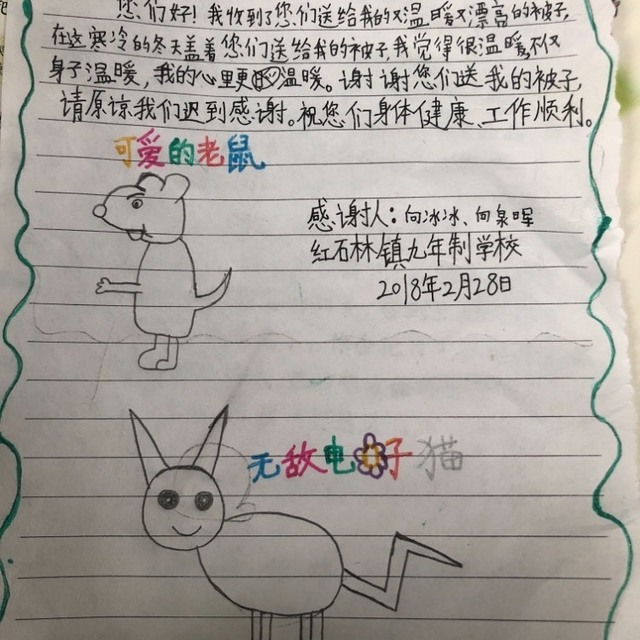 您们好！我收到了您们送给我的又温暖又漂亮的被子，
在这寒冷的冬天盖着您们送给我的被子，我觉得很温暖，不仅
身子温暖，我的心里更温暖。谢谢您们送我的被子，
请原谅我们迟到感谢。祝您们身体健康、工作顺利。
可爱的老鼠
感谢人：向冰冰、向泉晖
红石林镇九年制学校
2018年2月28日
无敌电子猫